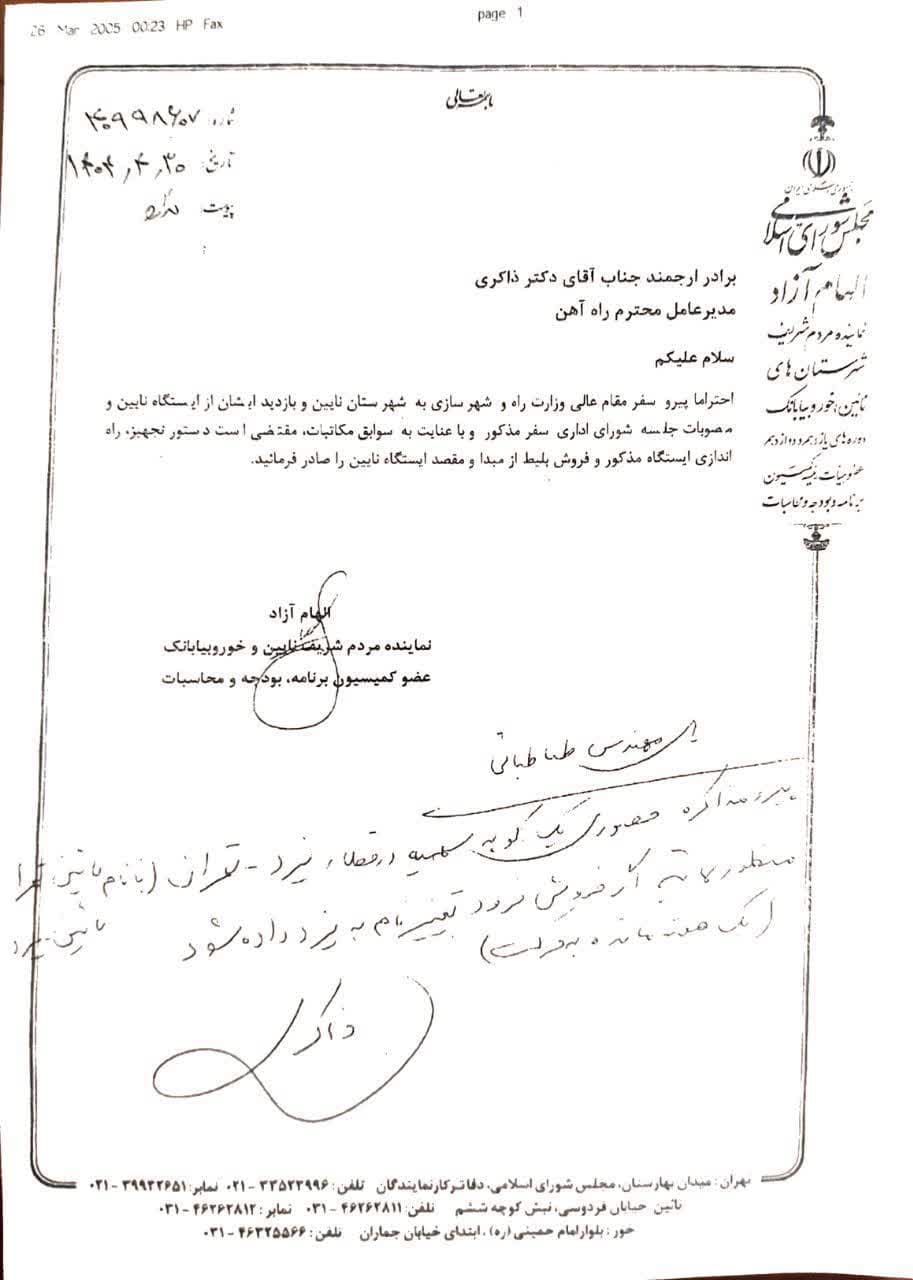 26 Mar 2005 00:23 HP Fax
page 1
باسمه تعالی
شماره: ۴۰۹۹۸۶۰۷
تاریخ: ۱۴۰۴,۴,۳۰
پیوست: ندارد
جمهوری اسلامی ایران
مجلس شورای اسلامی
الهام آزاد
نماینده مردم شریف
شهرستان های
نائین، خور و بیابانک
دوره های یازدهم و دوازدهم
عضو هیات رئیسه کمیسیون
برنامه و بودجه و محاسبات
برادر ارجمند جناب آقای دکتر ذاکری
مدیرعامل محترم راه آهن
سلام علیکم
احتراما پیرو سفر مقام عالی وزارت راه و شهر سازی به شهرستان نایین و بازدید ایشان از ایستگاه نایین و
مصوبات جلسه شورای اداری سفر مذکور و با عنایت به سوابق مکاتبات، مقتضی است دستور تجهیز، راه
اندازی ایستگاه مذکور و فروش بلیط از مبدا و مقصد ایستگاه نایین را صادر فرمائید.
الهام آزاد
نماینده مردم شریف نایین و خوروبیابانک
عضو کمیسیون برنامه، بودجه و محاسبات
مهندس طباطبائی
پیرو مذاکره حضوری یک کوپه سهمیه در قطار یزد - تهران (با نام نائین
منظور گردد اگر فروش نرود تغییر نام به یزد داده شود
نائین - یزد
(یک هفته مانده به حرکت)
ذاکری
تهران: میدان بهارستان، مجلس شورای اسلامی، دفاتر کار نمایندگان تلفن: ۳۳۵۲۳۹۹۶ - ۰۲۱ نمابر: ۳۹۹۳۲۶۵۱ - ۰۲۱
نائین خیابان فردوسی، نبش کوچه ششم تلفن: ۴۶۲۶۲۸۱۱ - ۰۳۱ نمابر: ۴۶۲۶۲۸۱۲ - ۰۳۱
خور: بلوار امام خمینی (ره)، ابتدای خیابان جماران تلفن: ۴۶۳۲۵۵۶۶ - ۰۳۱